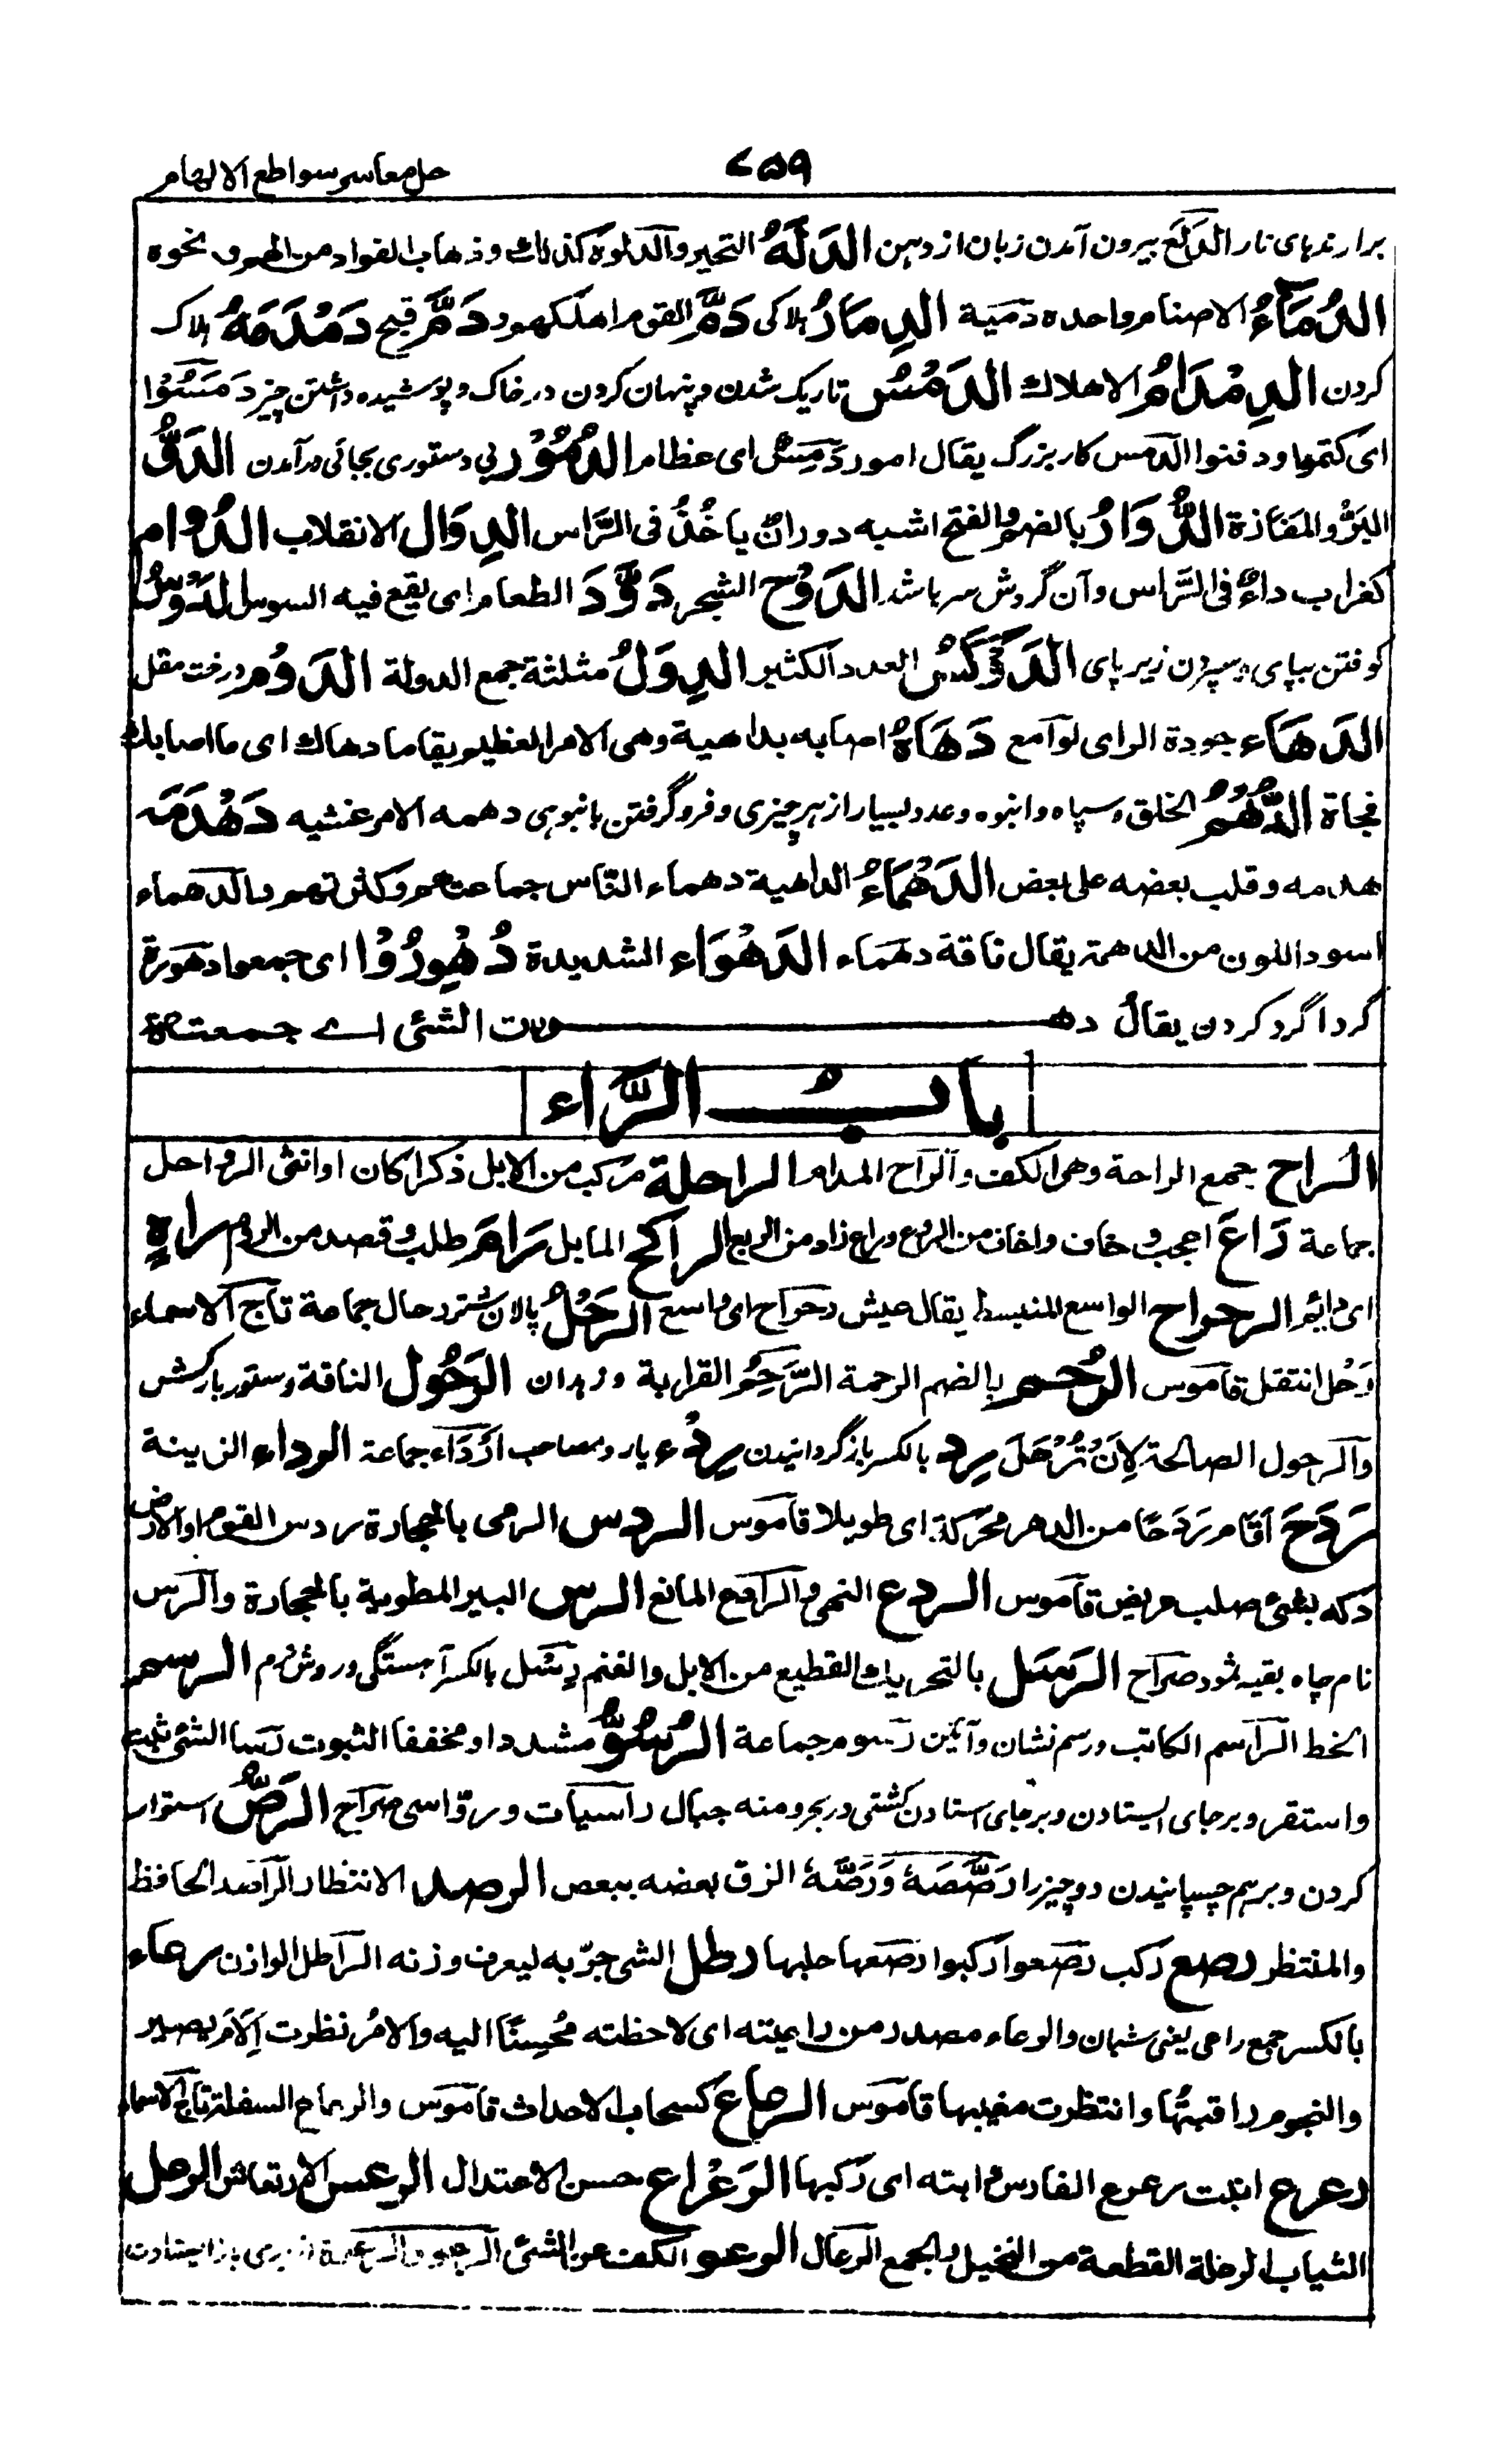 ۷۵۹
حل معاسر سواطع الالهام
برارندهای نار الدلع بیرون آمدن زبان از دہن الدَلَهُ التحیر والدلوه کذلك وذهاب الفواد من الهم و نحوه
الدُمَاءُ الاصنام واحده دمیة الدِمَارُ ہلاکی دَمَّ القوم اهلکهم ودَمَّ قبح دَمْدَمَهُ ہلاک
کردن الدِمْدَامُ الاهلاك الدَمْسُ تاریک شدن و پنہان کردن در خاک و پوشیده داشتن چیز دَمَسُوْا
ای کتموا ودفنوا الدمس کار بزرگ یقال امور دمس ای عظام الدُمُوْر بی دستوری بجائی درآمدن الدَوُّ
البَرُّ والمفازة الدُّوَارُ بالضم والفتح اشبه دوران یاخُذُ فی الرَّاس الدِوَال الانقلاب الدُوام
کغراب داءٌ فی الرَّاس وآن گردش سر باشد الدَوْح الشجر دَوَّدَ الطعام ای یقع فیه السوس الدَوْسُ
کوفتن بپای و سپردن زیر پای الدَوْكَسُ العدد الکثیر الدِوَلُ مثلثة جمع الدولة الدَوْم درخت مقل
الدَهَاء جودة الرای لوامع دَهَاهُ اصابه بداهیة وهی الامر العظیم یقال ما دهاك ای ما اصابك
فجاة الدَّهْمُ الخلق و سپاه و انبوه و عدد بسیار از ہر چیزی و فرو گرفتن بانبوہی دهمه الامر غشیه دَهْدَمَه
هدمه وقلب بعضه علی بعض الدَهْمَاءُ الداهیة دهماء النّاس جماعتهم وکثرتهم والدهماء
اسود اللون من الدهمة یقال ناقة دهماء الدَهْوَاء الشدیدة دُهْوِرُوْا ای جمعوا دهورة
گرداگرد کردن یقال دهـــورت الشئی اے جمعتة
باب الرَّاء
الراح جمع الراحة وهی الکف والراح المدام الراحلة مرکب من الابل ذکرا کان او انثی الرواحل
جماعة رَاعَ اعجب و خاف واخاف من الروع وراع زاد من الریع الراکح المایل رَامَ طلب وقصد من الروم راهٍ
ای دایم الرحراح الواسع المنبسط یقال عیش رحراح ای واسع الرَحْلُ پالان شتر رحال جماعة تاج الاسماء
رَحْل انتقل قاموس الرُحم بالضم الرحمة الرَّحِمُ القرابة و زہدان الرَحُول الناقة و ستور بارکش
والرحول الصالحة لِاَنْ تُرْحَلَ رد بالکسر بازگردانیدن رِدْء یار و مصاحب ارْدَاء جماعة الرداء الزینة
رَدَحَ اقام رَدَحًا من الدهر محرکة ای طویلا قاموس الردس الرمی بالحجارة ردس القوم او الارض
دکه بشئ صلب عریض قاموس الردع النهی والرادع المانع الرس البیر المطویة بالحجارة والرس
نام چاه بقیه ثمود صراح الرَسَل بالتحریك القطیع من الابل والغنم رِسْل بالکسر آہستگی و روش نرم الرسم
الخط الراسم الکاتب و رسم نشان و آئین رسوم جماعة الرُسُوُّ مشددا و مخففا الثبوت رسا الشئ ثبت
واستقر و برجای ایستادن و برجای استادن کشتی در بحر ومنه جبال راسیات و رواسی صراح الرَصُّ استوار
کردن و برہم چسپانیدن دو چیز را رَصَّصَهُ وَرَصَّهُ الزق بعضه ببعض الرصد الانتظار الراصد الحافظ
والمنتظر رصع رکب رصعوا رکبوا رصعها حلیها رطل الشی جرّ به لیعرف وزنه الراطل الوازن رعاء
بالکسر جمع راعی یعنی شبان والرعاء مصدر من راعیته ای لاحظته مُحْسِنًا الیه والامر نظرت اِلَامَ یصیر
والنجوم راقبتُها وانتظرت مغیبها قاموس الرعاع کسحاب الاحداث قاموس والرعاع السفلة تاج الاسماء
رعرع انبت رعرع الفارس دابته ای رکبها الرَعْرَاع حسن الاعتدال الرعس الارتعاش الرعل
الثیاب الرعلة القطعة من الخیل والجمع الرعال الرعو الکف عن الشئ